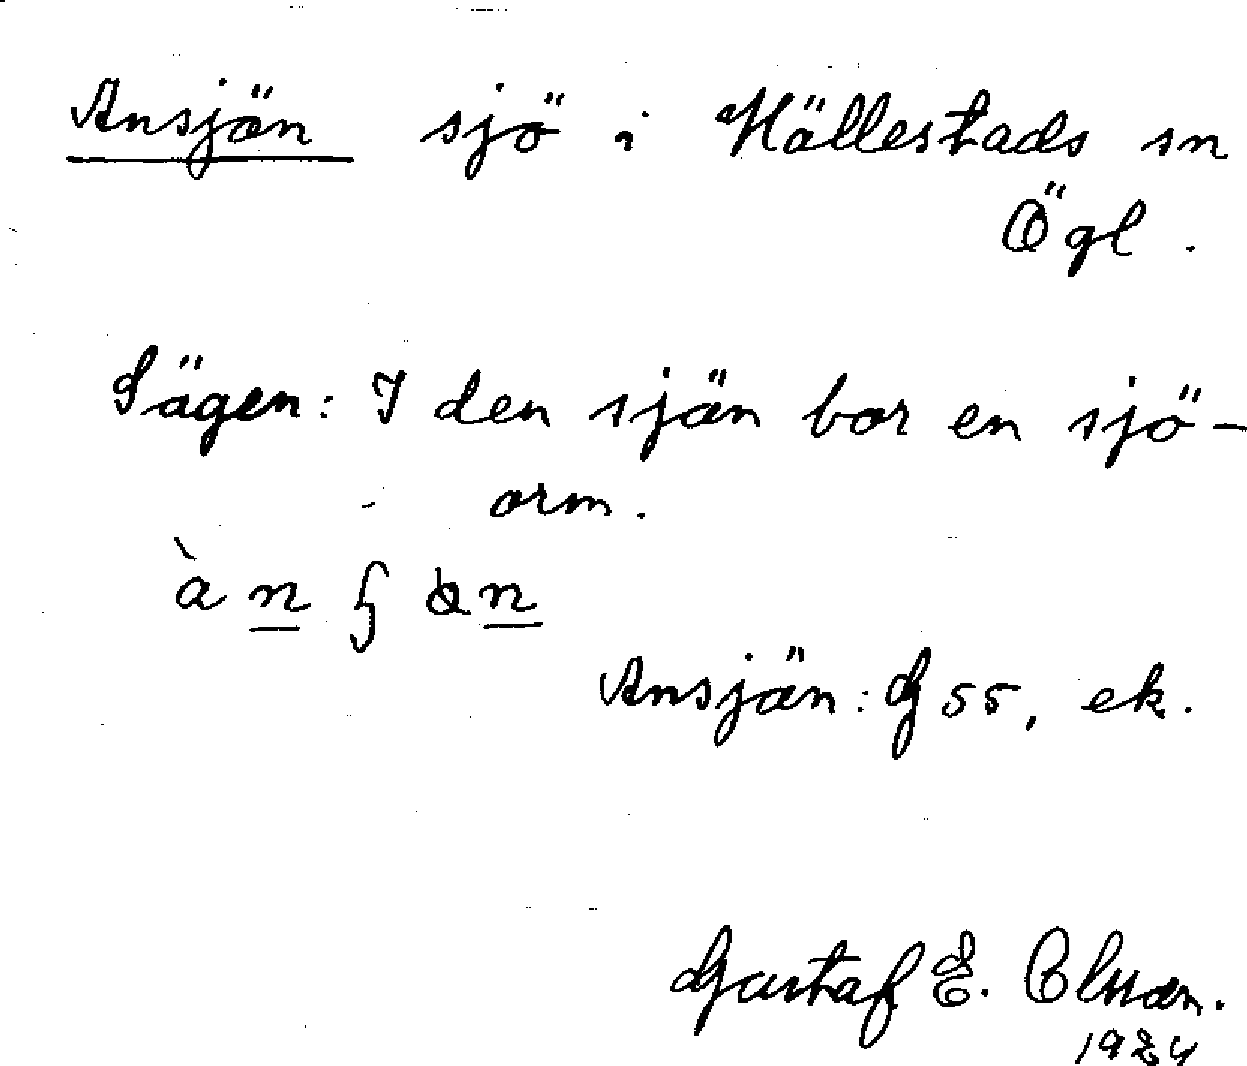 Ansjön sjö i Hällestads sn
Ögl.
Sägen: I den sjön bor en sjö-
orm.
Ansjön: G 55, ek.
Gustaf E. Olsson.
1924